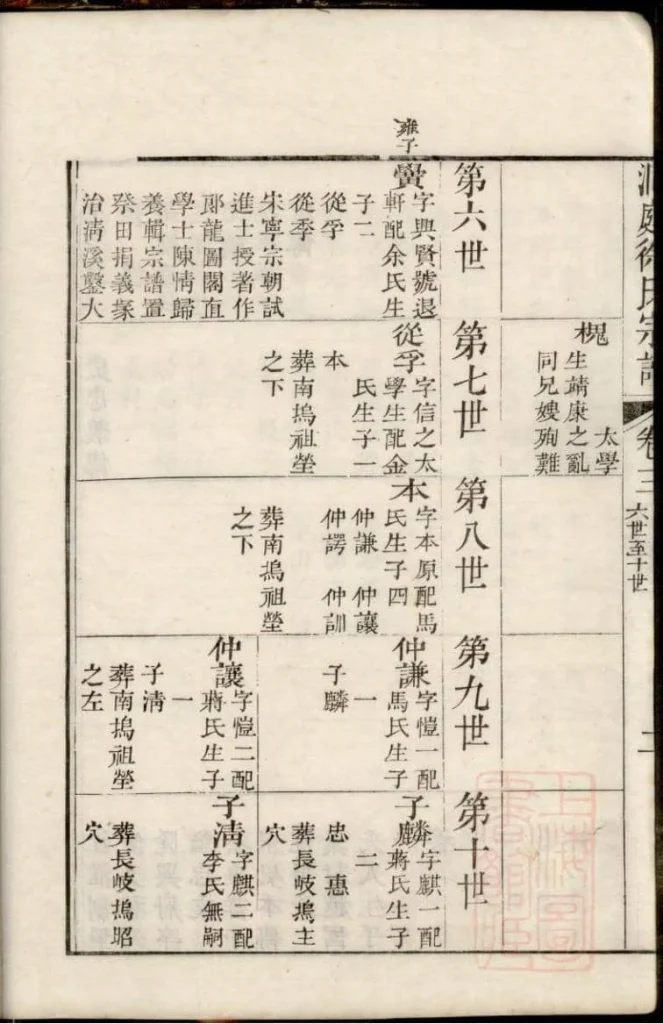 洞庭徐氏宗譜
卷三
六世至十世
二
槐
太學
生靖康之亂
同兄嫂殉難
第六世
雍子
黌
字興賢號退
軒配余氏生
子二
從孚
從季
宋寧宗朝試
進士授著作
郎龍圖閣直
學士陳情歸
養輯宗譜置
祭田捐義塚
治清溪鑿大
第七世
從孚
字信之太
學生配金
氏生子一
本
葬南塢祖塋
之下
第八世
本
字本原配馬
氏生子四
仲謙 仲讓
仲諤 仲訓
葬南塢祖塋
之下
第九世
仲謙
字愷一配
馬氏生子
一
子麟
仲讓
字愷二配
蔣氏生子
一
子淸
葬南塢祖塋
之左
第十世
子麟
字麒一配
蔣氏生子
二
忠 惠
葬長岐塢主
穴
子淸
字麒二配
李氏無嗣
葬長岐塢昭
穴